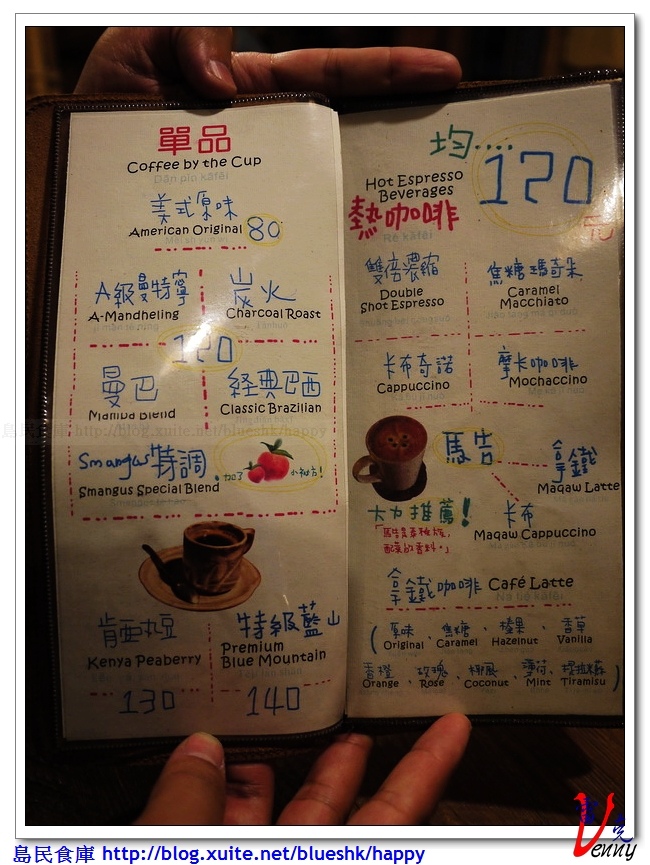 單品
Coffee by the Cup
美式原味
American Original 80
A級曼特寧
A-Mandheling
炭火
Charcoal Roast
120
曼巴
Manba Blend
經典巴西
Classic Brazilian
Smangus特調
Smangus Special Blend
加了 小祕方!
肯亞丸豆
Kenya Peaberry
130
特級藍山
Premium
Blue Mountain
140
均....
120
元
Hot Espresso
Beverages
熱咖啡
Rè kāfēi
雙倍濃縮
Double
Shot Espresso
焦糖瑪奇朵
Caramel
Macchiato
卡布奇諾
Cappuccino
摩卡咖啡
Mochaccino
馬告
拿鐵
Maqaw Latte
大力推薦!
卡布
Maqaw Cappuccino
拿鐵咖啡 Café Latte
(原味、焦糖、榛果、香草
Original Caramel Hazelnut Vanilla
香橙、玫瑰、椰風、薄荷、提拉米蘇)
Orange Rose Coconut Mint Tiramisu
島民食庫 http://blog.xuite.net/blueshk/happy
Venny
島民食庫 http://blog.xuite.net/blueshk/happy